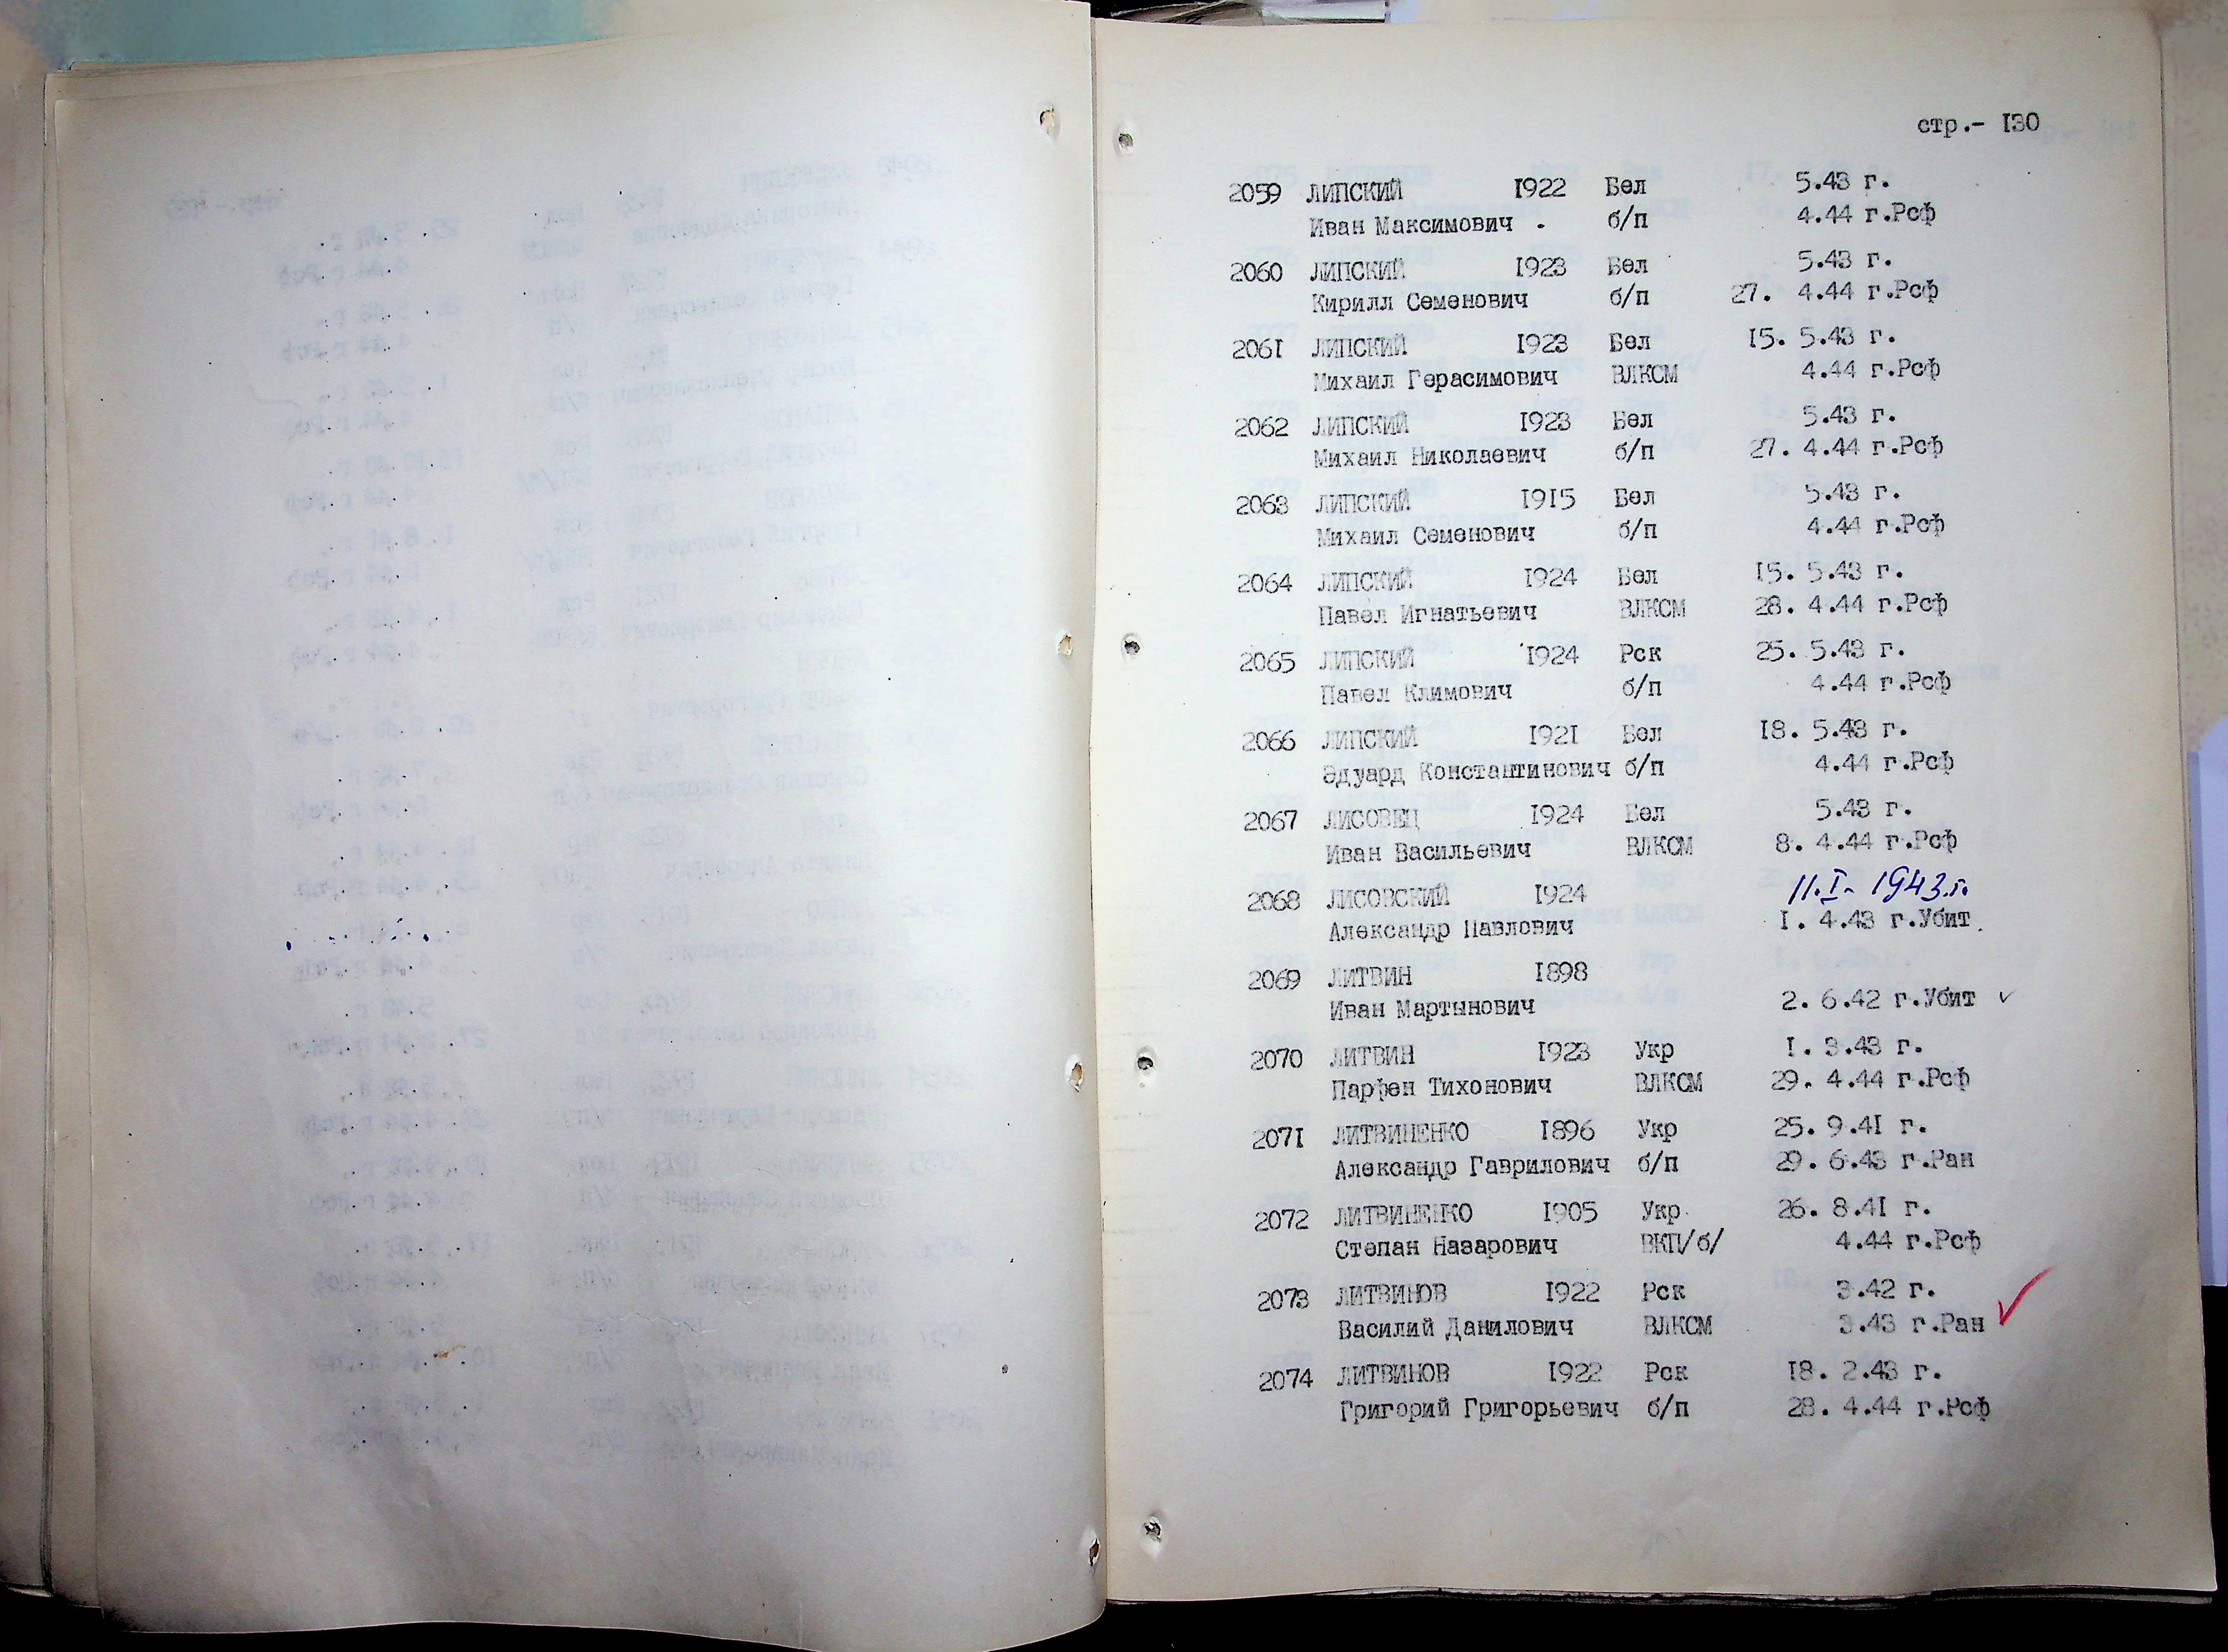 стр.- I30
2059 ЛИПСКИЙ I922 Бел 5.43 г.
Иван Максимович . б/п 4.44 г.Рсф
2060 ЛИПСКИЙ I923 Бел 5.43 г.
Кирилл Семенович б/п 27. 4.44 г.Рсф
206I ЛИПСКИЙ I923 Бел I5. 5.43 г.
Михаил Герасимович ВЛКСМ 4.44 г.Рсф
2062 ЛИПСКИЙ I923 Бел 5.43 г.
Михаил Николаевич б/п 27. 4.44 г.Рсф
2063 ЛИПСКИЙ I9I5 Бел 5.43 г.
Михаил Семенович б/п 4.44 г.Рсф
2064 ЛИПСКИЙ I924 Бел I5. 5.43 г.
Павел Игнатьевич ВЛКСМ 28. 4.44 г.Рсф
2065 ЛИПСКИЙ I924 Рск 25. 5.43 г.
Павел Климович б/п 4.44 г.Рсф
2066 ЛИПСКИЙ I92I Бел I8. 5.43 г.
Эдуард Константинович б/п 4.44 г.Рсф
2067 ЛИСОВЕЦ I924 Бел 5.43 г.
Иван Васильевич ВЛКСМ 8. 4.44 г.Рсф
2068 ЛИСОВСКИЙ I924 11.I- 1943.г.
Александр Павлович I. 4.43 г.Убит.
2069 ЛИТВИН I898
Иван Мартынович 2. 6.42 г.Убит ✓
2070 ЛИТВИН I923 Укр I. 3.43 г.
Парфен Тихонович ВЛКСМ 29. 4.44 г.Рсф
207I ЛИТВИНЕНКО I896 Укр 25. 9.4I г.
Александр Гаврилович б/п 29. 6.43 г.Ран
2072 ЛИТВИНЕНКО I905 Укр 26. 8.4I г.
Степан Назарович ВКП/б/ 4.44 г.Рсф
2073 ЛИТВИНОВ I922 Рск 3.42 г.
Василий Данилович ВЛКСМ 3.43 г.Ран ✓
2074 ЛИТВИНОВ I922 Рск I8. 2.43 г.
Григорий Григорьевич б/п 28. 4.44 г.Рсф